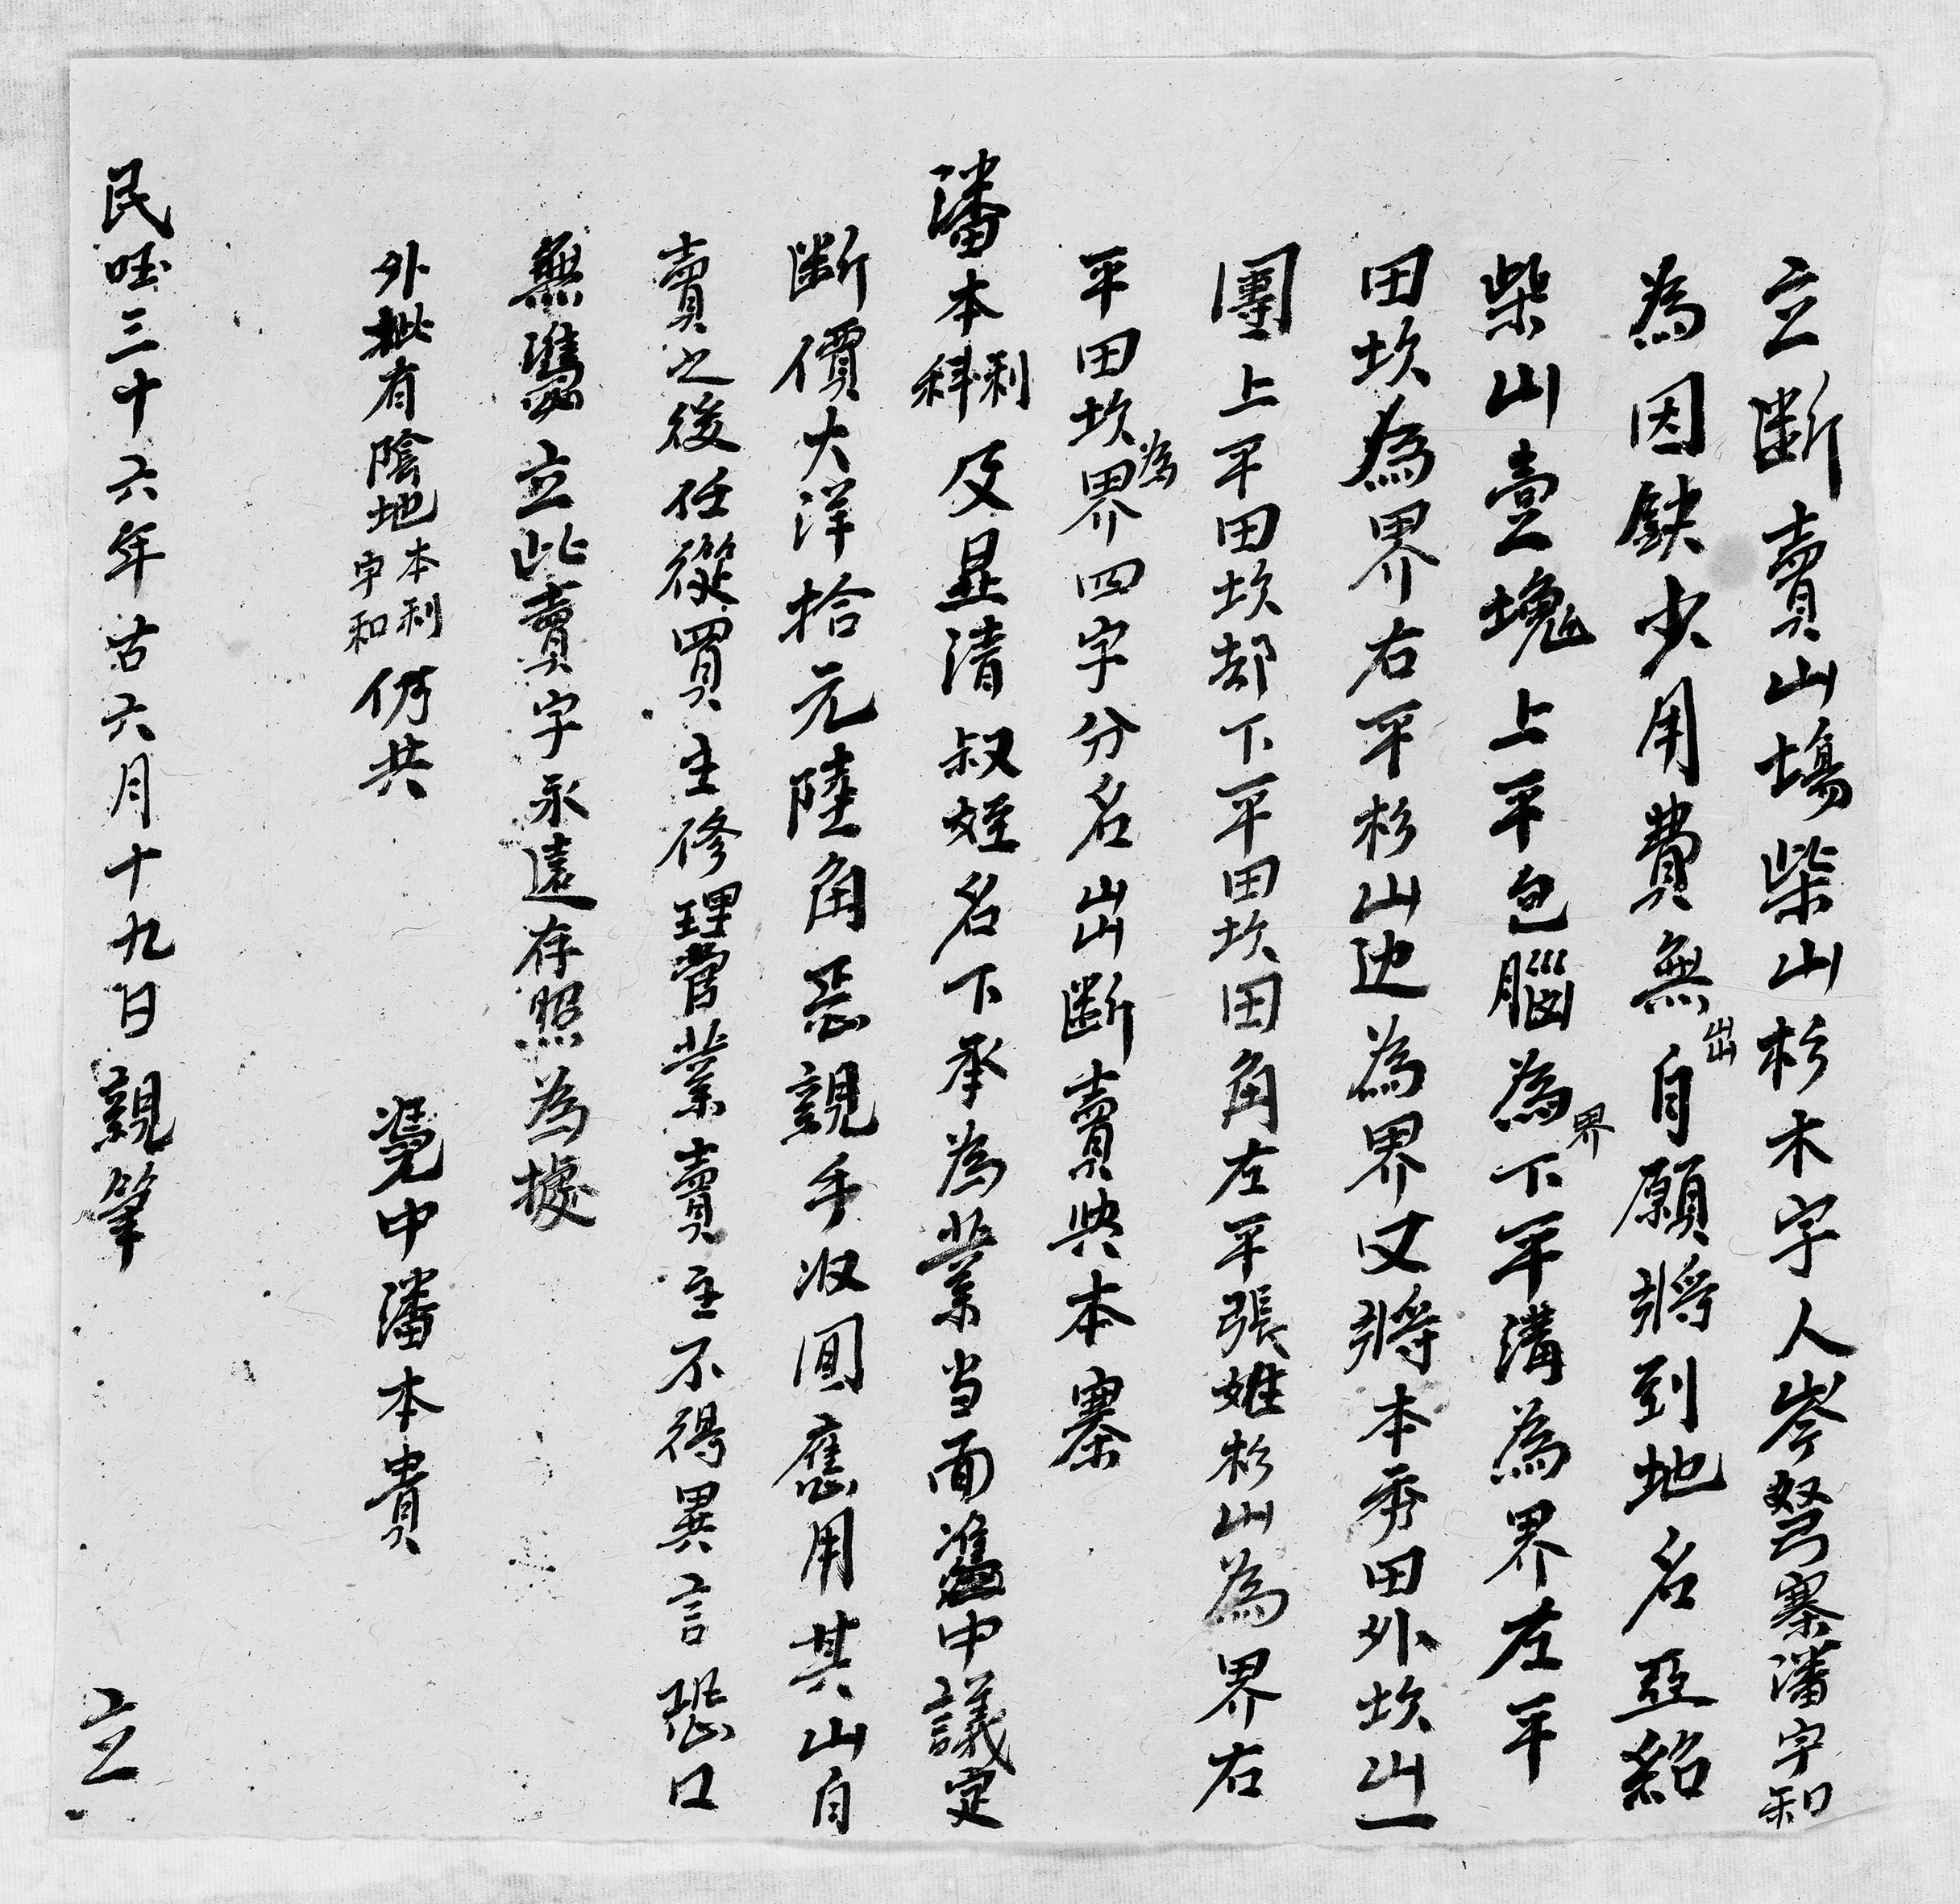 立斷賣山塲柴山杉木字人岑弩寨潘字和
為因缺少用費無出自願將到地名亞紹
柴山壹塊上平包腦為界下平溝為界左平
田坎為界右平杉山边為界又將本秀田外坎山一
團上平田坎却下平田坎田角左平張姓杉山為界右
平田坎為界四字分名出斷賣與本寨
潘本利科及显清叔姪名下承為業当面憑中議定
斷價大洋拾元陸角忩親手收囬應用其山自
賣之後任從買主修理管業賣主不得異言恐口
無憑立此賣字永遠存照為據
外批有陰地本利字和仍共
凴中潘本貴
民國三十六年古六月十九日親筆 立